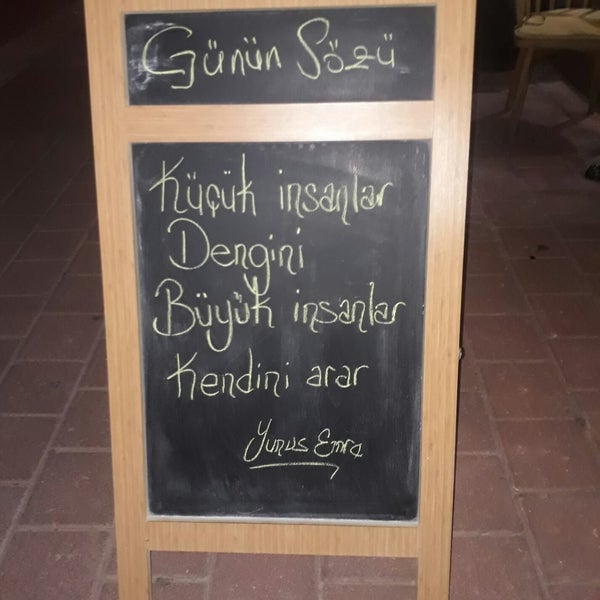 Günün Sözü
Küçük insanlar
Dengini
Büyük insanlar
Kendini arar
Yunus Emre